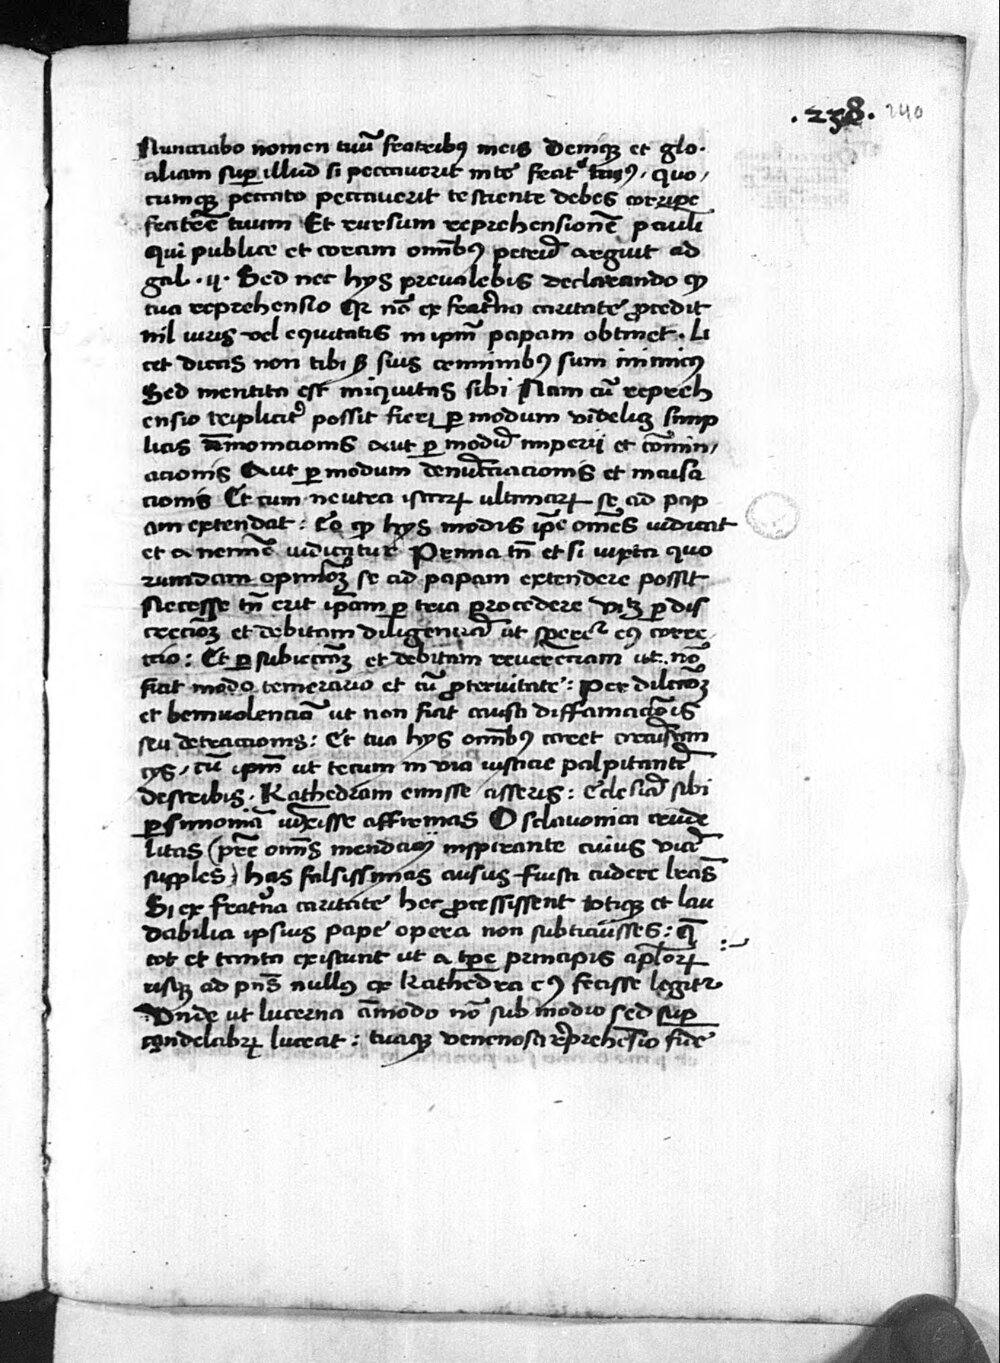 .238. 240
Nunctiabo nomen tuū fratribꝰ meis Deniqꝫ et glo.
aliam suꝑ illud si peccauerit inte frat̾ tuꝰ, quo,
cumqꝫ peccato peccauerit te sciente debes corriꝑe
fratrē tuum Et rursum reprehensionē pauli
qui publice et coram oīnibꝰ petrū arguit ad
gal. ij. Sed nec hys preualebis declarando ꝙ
tua reprehensio qꝛ nō ex frat̾na caritate ꝓcedit
nil iuris vel equitatis in ipm̄ papam obtinet. Li
cet dicas non tibi ß suis criminibꝰ sum inimicꝰ
Sed mentita est iniquitas sibi Nam cū repreh
ensio triplicit̾ possit fieri ꝑ modum videlicꝫ simp
licis āmonicionis Aut ꝑ modū imperij et cōmin,
acionis Aut ꝑ modum denūcciacionis et incusa
cionis Et cum neutra istarꝝ ultimarꝝ se ad pap
am extendat: Eo ꝙ hys modis ip̄e om̄es iudicat
et a nemīe iudicatur Prima tn̄ et si iuxta quo
rumdam opiniōꝫ se ad papam extendere possit
Necesse tn̄ erit ip̄am ꝑ tria procedere vidꝫ ꝑ dis
creciōꝫ et debitam diligenciā ut speret̾ eꝰ corre,
ctio: Et ꝑ subiectiōꝫ et debitam reuerenciam ut nō
fiat modo temerario et cū ꝓteruitate: Per dilectōꝫ
et beniuolenciā ut non fiat causa diffamaciōis
seu detraccionis: Et tua hys oīnibꝰ caret
cū ipm̄ ut tecum in via iusticie palpitantē
describis. Kathedram emisse asseris: Eclesiā sibi
ꝑ simoniā vēdisse affirmas O sclauonica crude
litas (pr̄e om̄is mendacij inspirante cuius vicē
supples) has falsissimas ausus fuisti cudere lr̄as
Si ex frat̾na caritate hec ꝓcessissent totiqꝫ et lau
dabilia ipsius pape opera non subticuisses: q̄
tot et tanta existunt ut a tꝑe principis apl̄orꝝ
usqꝫ ad pn̄s nullꝰ ex Kathedra eꝰ fecisse legit̾
Unde ut lucerna āmodo nō sub modio sed suꝑ
candelabrꝝ luceat: tuaqꝫ venenosa rep̄rehēsio fide